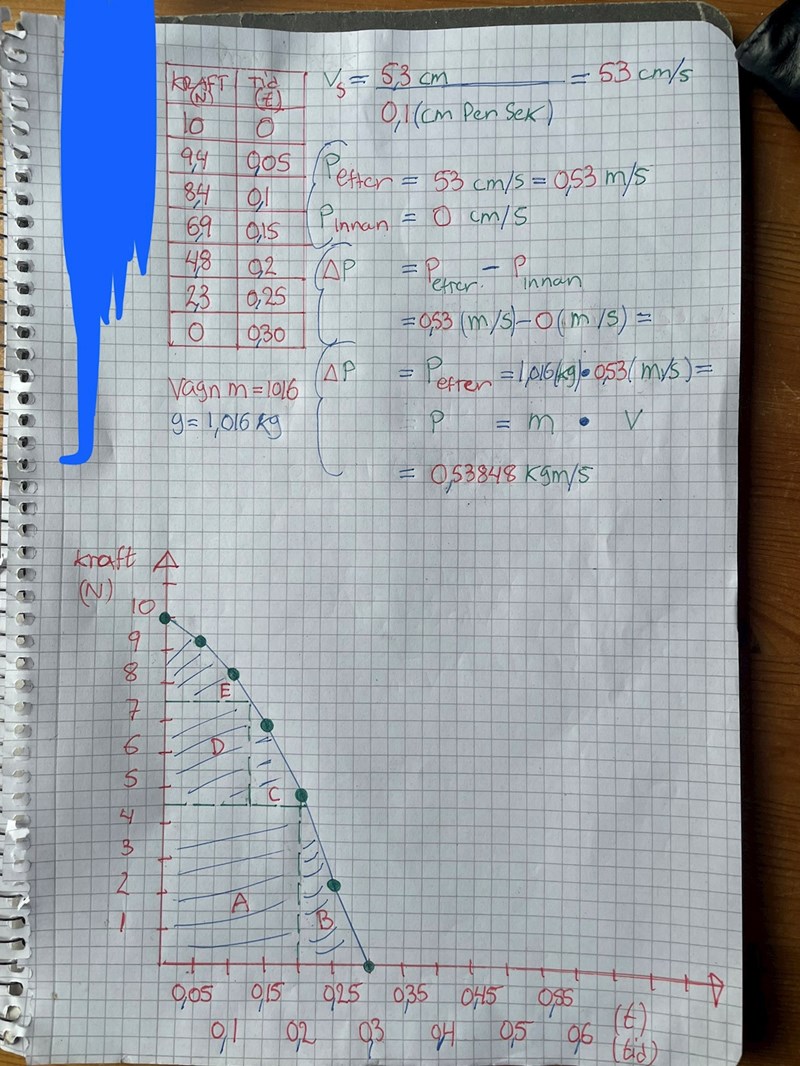 KRAFT (N) Tid (t)
10 0
9,4 0,05
8,4 0,1
6,9 0,15
4,8 0,2
2,3 0,25
0 0,30
Vagn m = 1016
g = 1,016 kg
Vs = 5,3 cm / 0,1 (cm Per Sek) = 53 cm/s
Pefter = 53 cm/s = 0,53 m/s
Pinnan = 0 cm/s
ΔP = Pefter - Pinnan
= 0,53 (m/s) - 0 (m/s) =
ΔP = Pefter = 1,016 (kg) • 0,53 (m/s) =
P = m • V
= 0,53848 kgm/s
kraft
(N)
10
9
8
E
7
D
6
5
C
4
3
2
A
B
1
0,05 0,15 0,25 0,35 0,45 0,55
0,1 0,2 0,3 0,4 0,5 0,6
(t)
(tid)